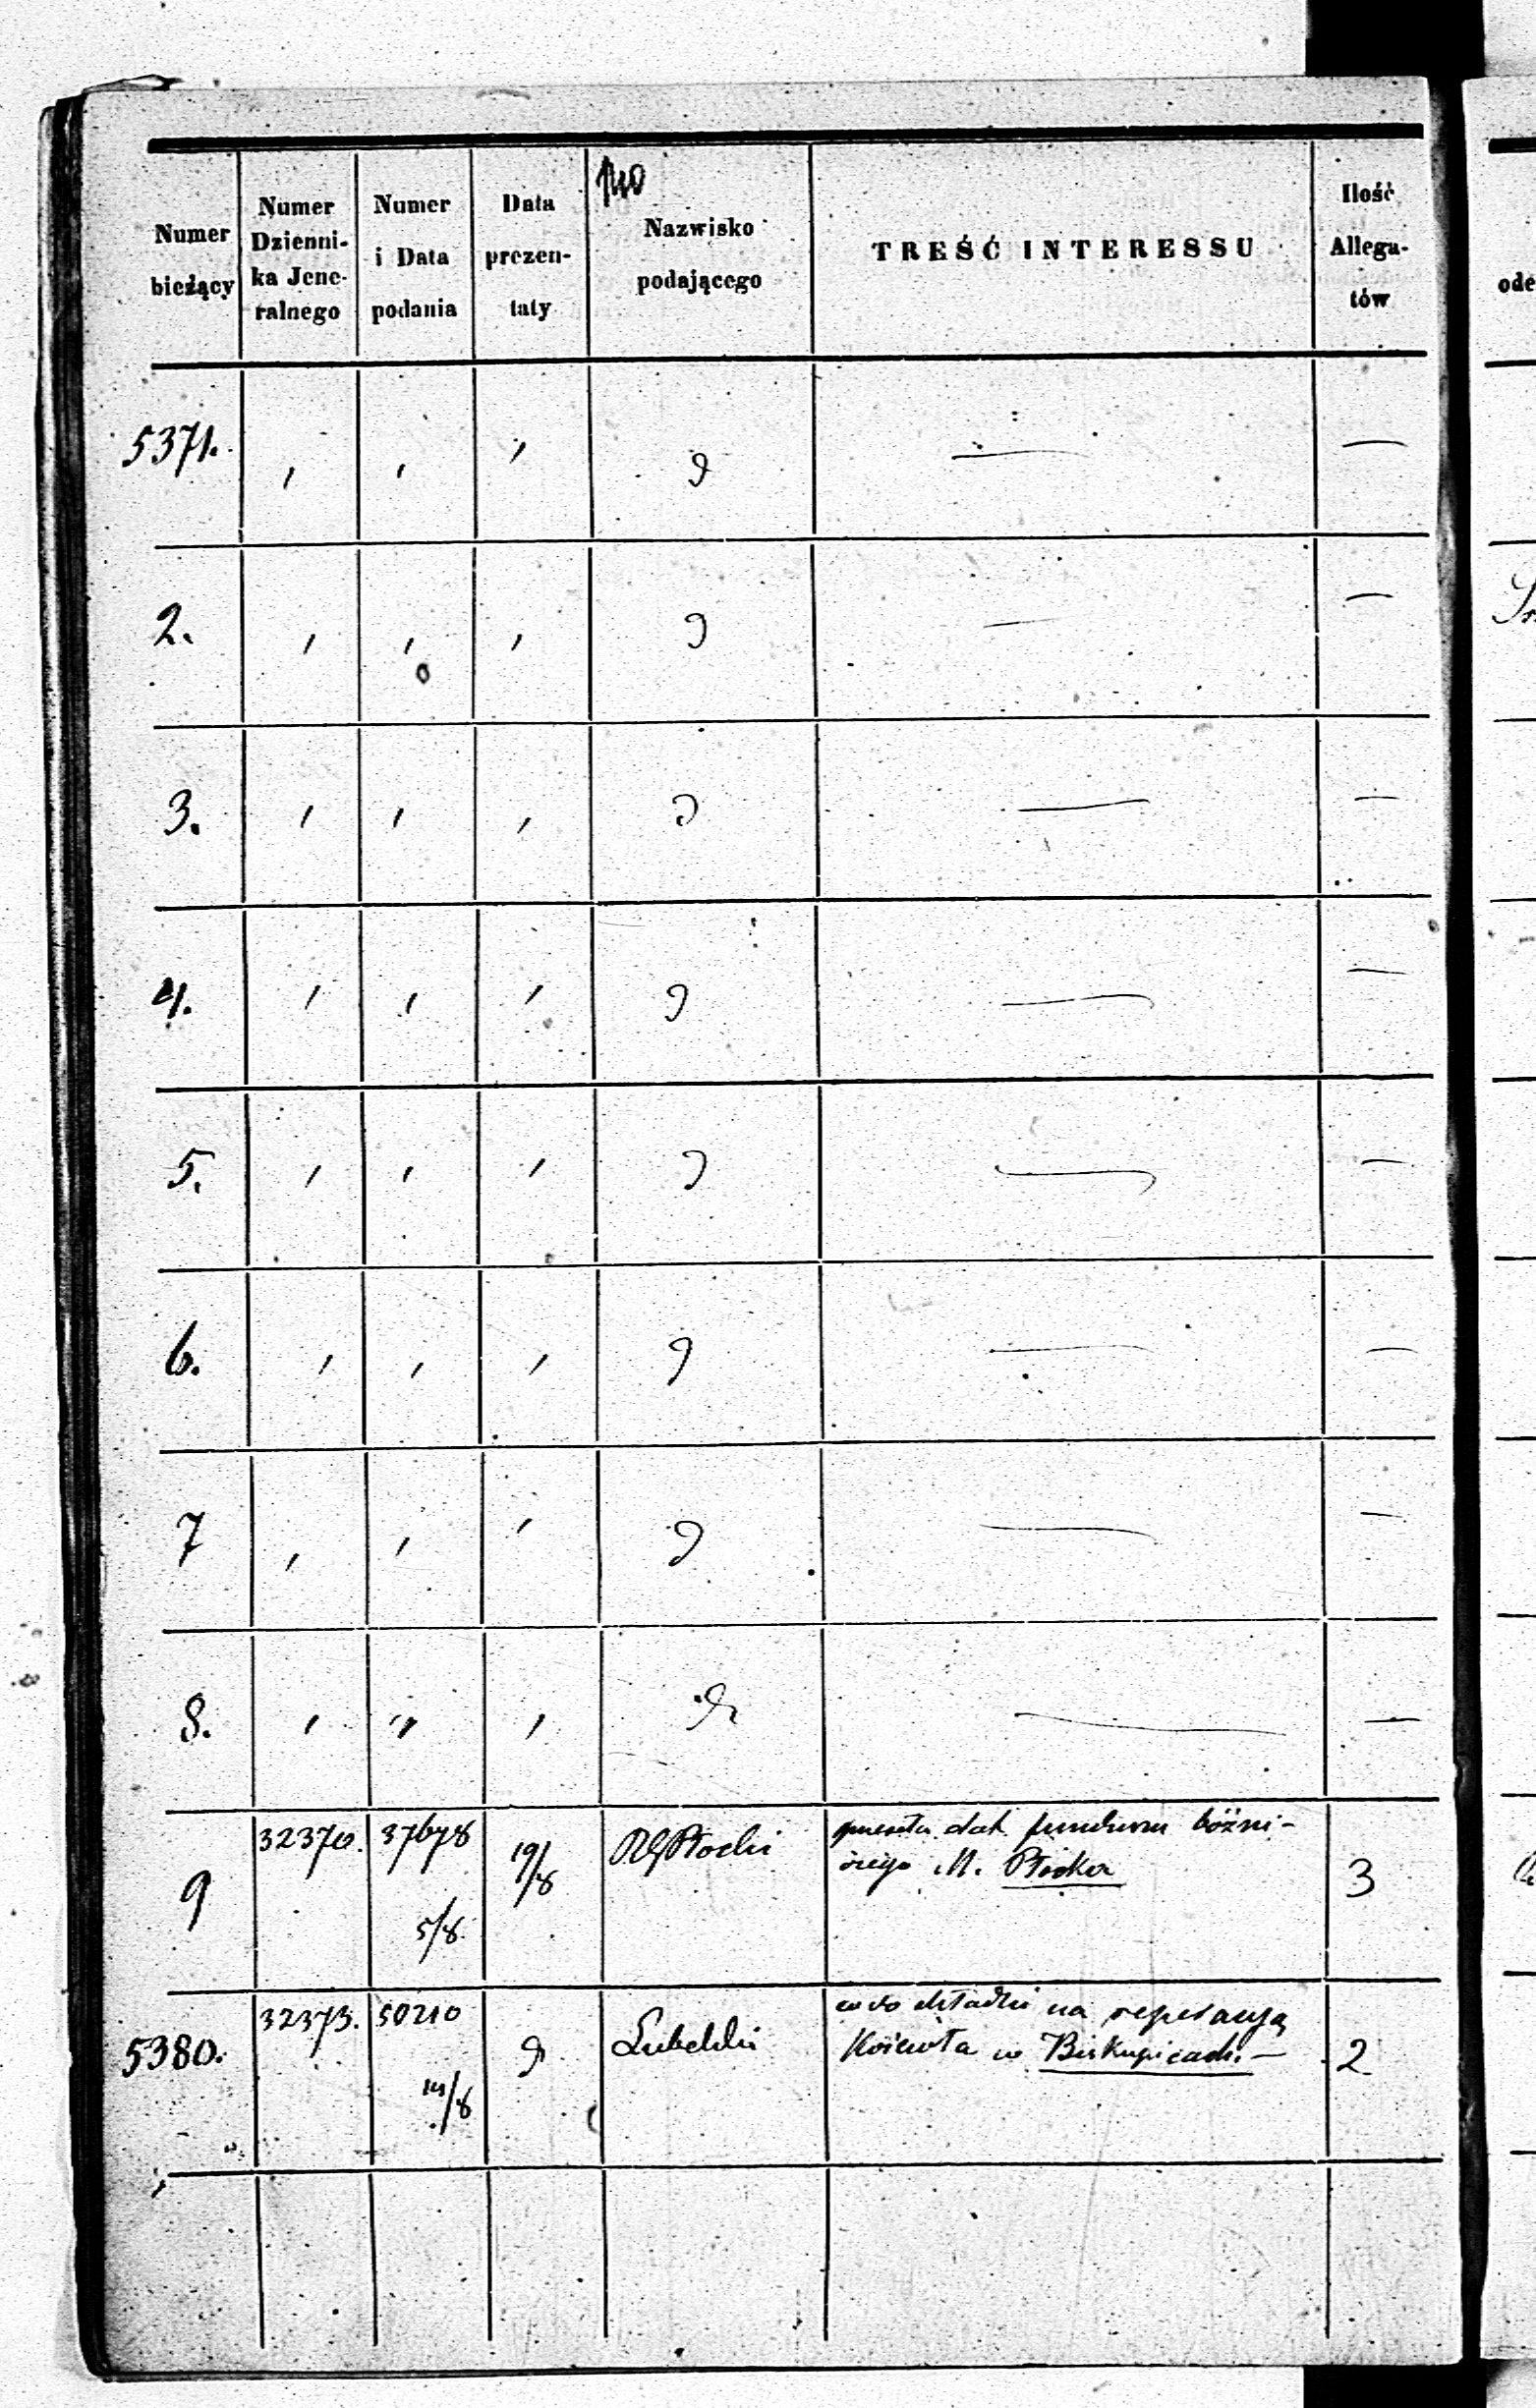 140
Numer bieżący
Numer Dzienni-ka Jene-ralnego
Numer i Data podania
Data prezen-taty
Nazwisko podającego
TREŚĆ INTERESSU
Ilość Allega-tów
5371.
2.
3.
4.
5.
6.
7
8.
9 32370. 37678 5/8 19/8 RG Płocki
funduszu bóżni-
czego M. Płocka 3
5380. 32373. 50210 14/8 Lubelski
co do składki na reperacyą
Kościoła w Biskupicach.— 2